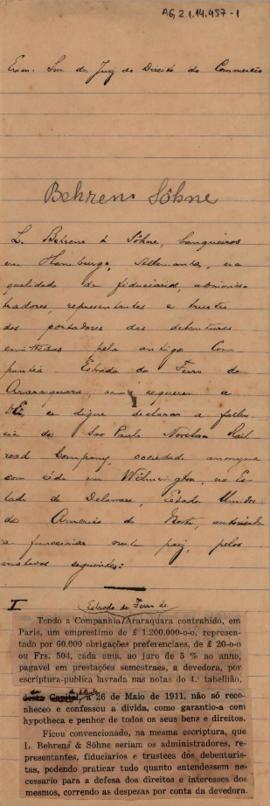 AG, 2.1.14.457-1
Exmo. Snr. Dr. Juiz de Direito do Commercio
Behrens Söhne
L. Behrens & Söhne, banqueiros
em Hamburgo, Allemanha, na
qualidade de fiduciarios, adminis-
tradores, representantes e trustes
dos portadores das debentures
emittidas pela antiga Com-
panhia Estrada de Ferro de
Araraquara, requerem a
se digne declarar a fallen-
cia da Sao Paulo Northern Rail
road Company, sociedade anonyma
com séde em Wilmington, no Es-
tado de Delaware, Estados Unidos
da America do Norte, autorisada
a funccionar neste paiz, pelos
motivos seguintes:
I
Estrada de Ferro de
Tendo a Companhia/Araraquara contrahido, em
Paris, um emprestimo de £ 1.200.000-o-o, represen-
tado por 60.000 obrigações preferenciaes, de £ 20-o-o
ou Frs. 504, cada uma, ao juro de 5 % ao anno,
pagavel em prestações semestraes, a devedora, por
escriptura publica lavrada nas notas do 4.º tabellião,
desta Capital, a 26 de Maio de 1911, não só reco-
nheceu e confessou a divida, como garantio-a com
hypotheca e penhor de todos os seus bens e direitos.
Ficou convencionado, na mesma escriptura, que
L. Behrens & Söhne seriam os administradores, re-
presentantes, fiduciarios e trustées dos debenturis-
tas, podendo praticar tudo quanto entendessem ne-
cessario para a defesa dos direitos e interesses dos
mesmos, correndo as despezas por conta da devedora.